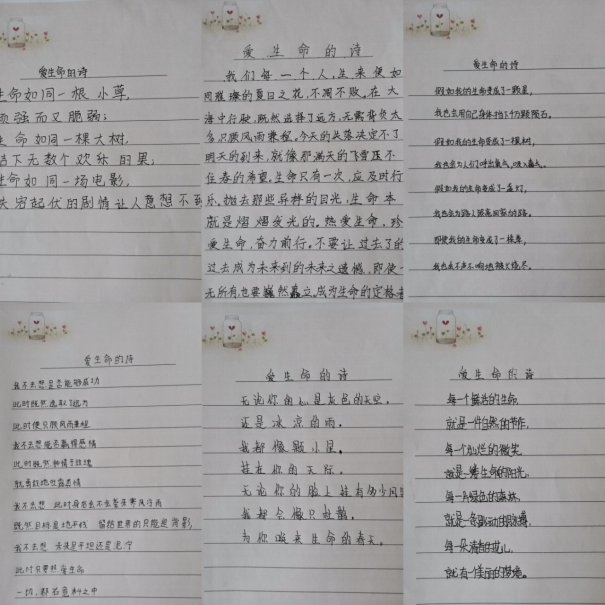 爱生命的诗
生命如同一根小草,
顽强而又脆弱;
生命如同一棵大树,
结下无数个欢乐的果;
生命如同一场电影,
跌宕起伏的剧情让人意想不到
爱生命的诗
我们每一个人,生来便如
同璀璨的夏日之花,不凋不败。在大
海中行驶,既然选择了远方,无需背负太
多只顾风雨兼程。今天的失落决定不了
明天的到来,就像那满天的飞雪压不
住春的希望,生命只有一次,应及时行
乐,抛去那些异样的目光,生命本
就是熠熠发光的。热爱生命,珍
爱生命,奋力前行。不要让过去了的
过去成为未来到的未来之遗憾,即使一
无所有也要巍然矗立。成为生命的定格者
爱生命的诗
假如我的生命变成了一颗星,
我也会用自己身体挡下万颗陨石。
假如我的生命变成了一棵树,
我也会为人们呼出氧气,吸入毒气。
假如我的生命变成了一盏灯,
我也会为路人照亮回家的路。
即使我的生命变成了一株草,
我也会不声不响地被火烧尽。
爱生命的诗
我不去想是否能够成功
此时既然选取了远方
此时便只顾风雨兼程
我不去想能否赢得爱情
此时既然钟情于玫瑰
就勇敢地吐露真情
我不去想 此时身后会不会袭来寒风冷雨
既然目标是地平线 留给世界的只能是背影
我不去想 未来是平坦还是泥泞
此时只要热爱生命
一切,都在意料之中
爱生命的诗
无论你的心是灰色的天空,
还是冰凉的雨。
我都像颗小星。
挂在你的天际。
无论你的脸上挂有多少风霜
我都会像只杜鹃,
为你唤来生命的春天。
爱生命的诗
每一个鲜活的生命,
就是一件自然的节作,
每一个灿烂的微笑,
就是一缕生命的阳光,
每一片绿色的森林,
就是一条跳动的脉搏,
每一朵清香的花儿,
就有一个美丽的梦境。